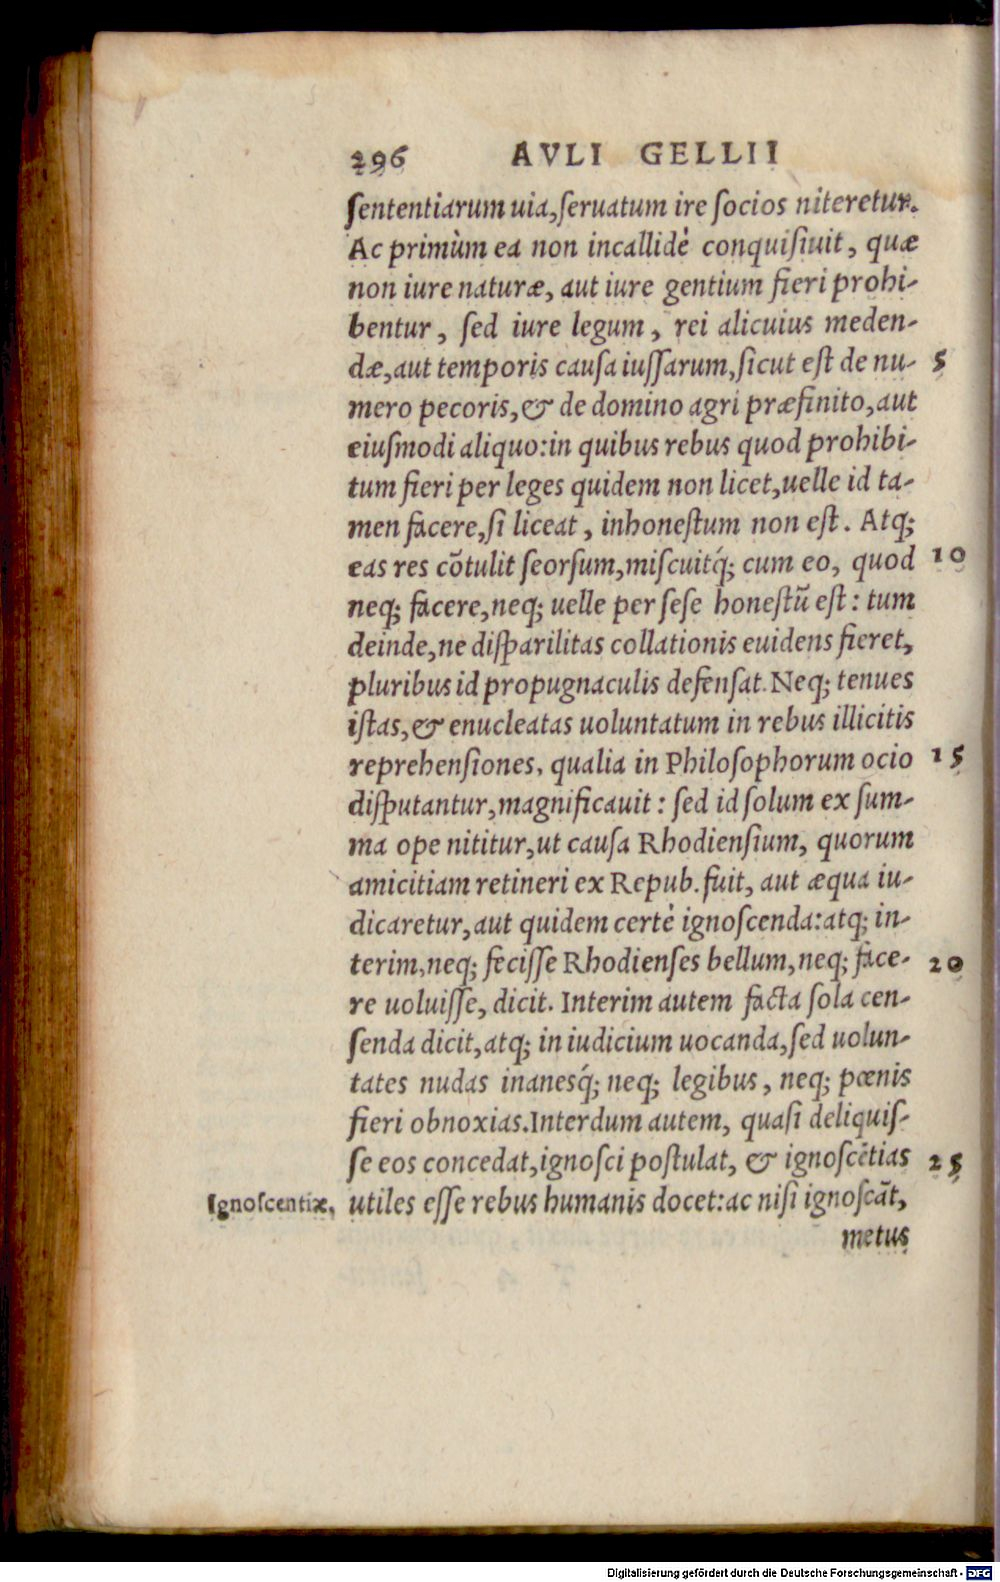 296 AVLI GELLII
ſententiarum uia,ſeruatum ire ſocios niteretur.
Ac primùm ea non incallidè conquiſiuit, quæ
non iure naturæ, aut iure gentium fieri prohi-
bentur, ſed iure legum, rei alicuius meden-
dæ,aut temporis cauſa iuſſarum,ſicut eſt de nu- 5
mero pecoris,& de domino agri præfinito,aut
eiuſmodi aliquo:in quibus rebus quod prohibi-
tum fieri per leges quidem non licet,uelle id ta-
men facere,ſi liceat, inhoneſtum non eſt. Atq;
eas res cōtulit ſeorſum,miſcuitq́; cum eo, quod 10
neq; facere,neq; uelle per ſeſe honeſtū eſt: tum
deinde,ne diſparilitas collationis euidens fieret,
pluribus id propugnaculis defenſat. Neq; tenues
iſtas,& enucleatas uoluntatum in rebus illicitis
reprehenſiones, qualia in Philoſophorum ocio 15
diſputantur,magnificauit: ſed id ſolum ex ſum-
ma ope nititur,ut cauſa Rhodienſium, quorum
amicitiam retineri ex Repub. fuit, aut æqua iu-
dicaretur,aut quidem certè ignoſcenda:atq; in-
terim,neq; feciſſe Rhodienſes bellum,neq; face- 20
re uoluiſſe, dicit. Interim autem facta ſola cen-
ſenda dicit,atq; in iudicium uocanda,ſed uolun-
tates nudas inanesq́; neq; legibus, neq; pœnis
fieri obnoxias.Interdum autem, quaſi deliquiſ-
ſe eos concedat,ignoſci poſtulat, & ignoſcētias 25
Ignoſcentiæ, utiles eſſe rebus humanis docet:ac niſi ignoſcāt,
metus
Digitalisierung gefördert durch die Deutsche Forschungsgemeinschaft - DFG